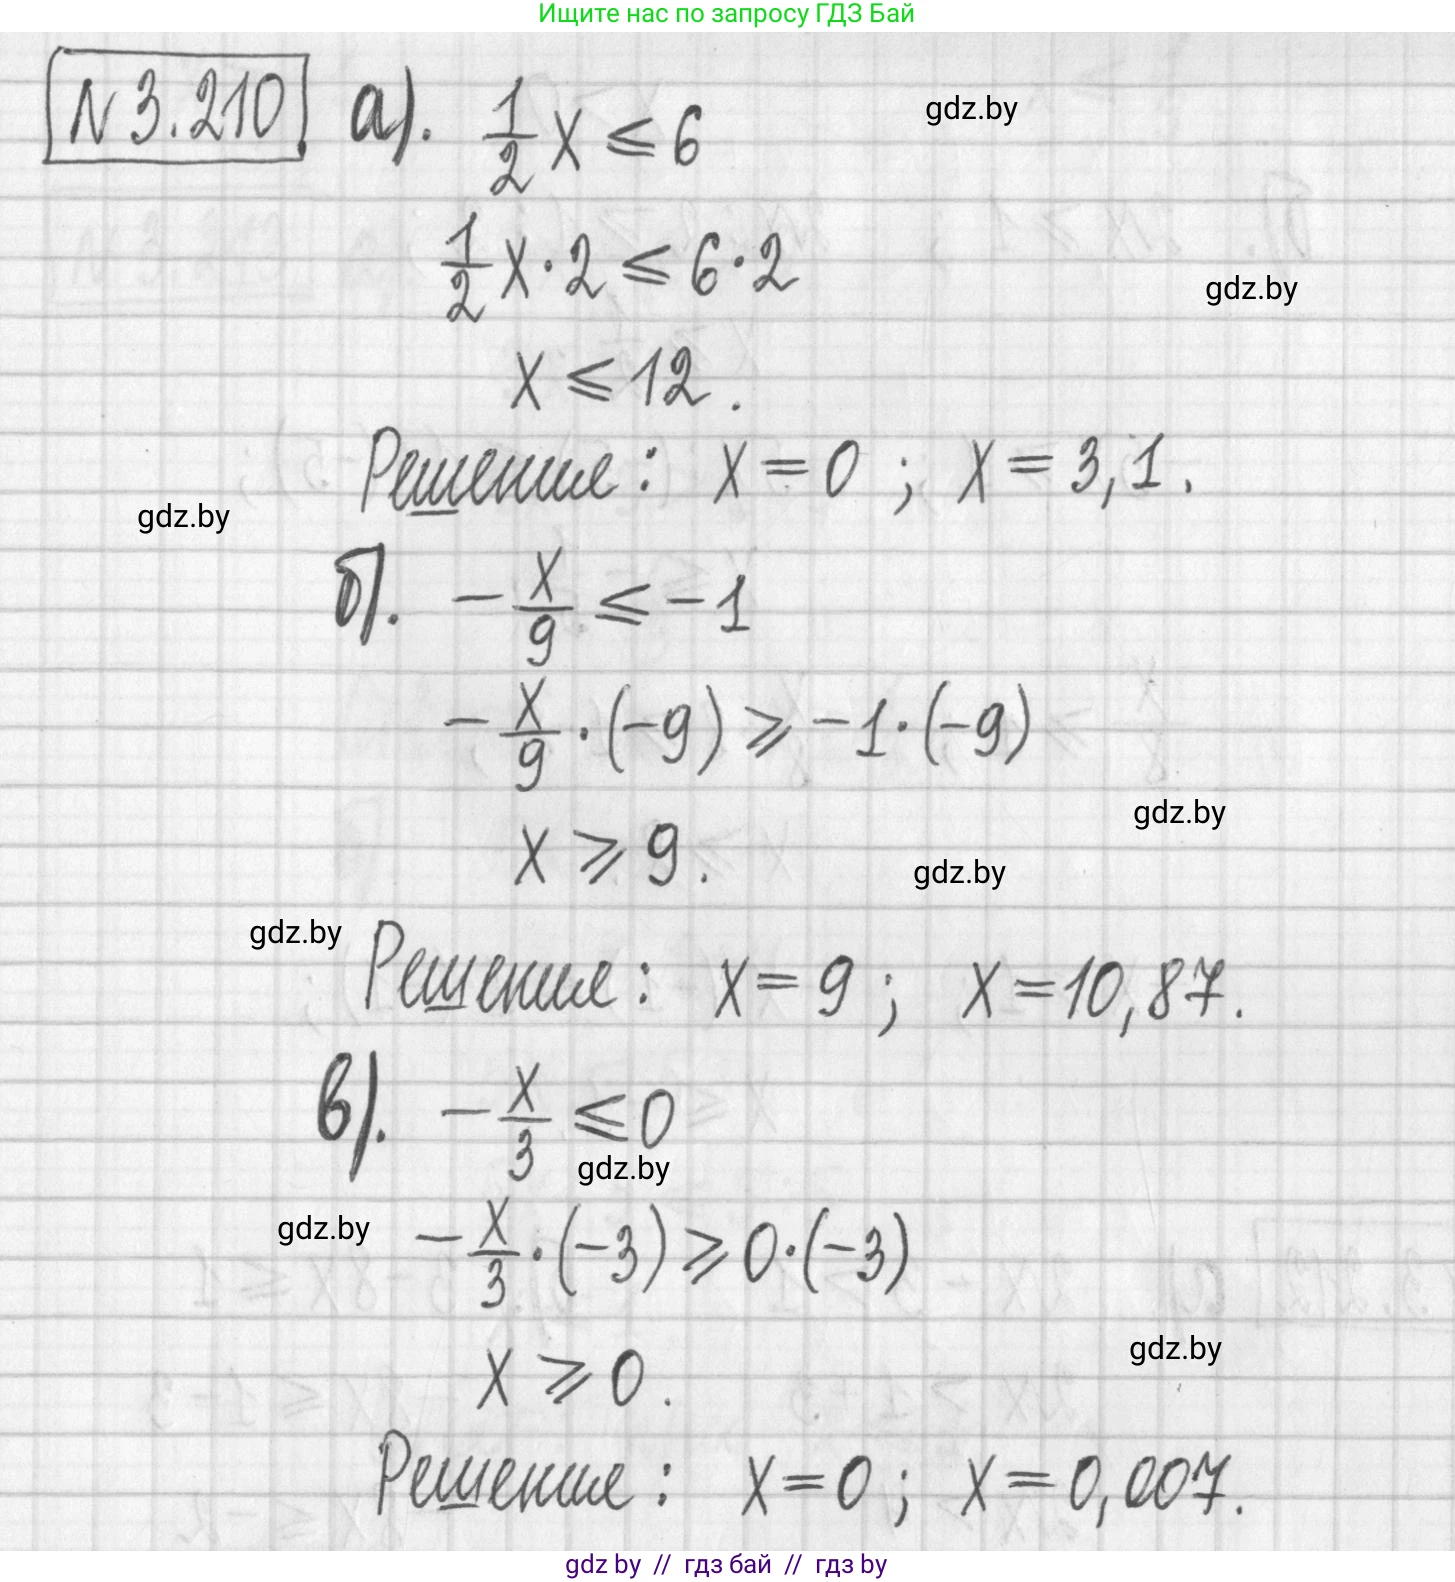 Ищите нас по запросу ГДЗ Бай
N 3.210 а). 1/2 x ⩽ 6
gdz.by
1/2 x · 2 ⩽ 6 · 2
gdz.by
x ⩽ 12.
Решения: x = 0 ; x = 3,1.
gdz.by
б). - x/9 ⩽ -1
- x/9 · (-9) ⩾ -1 · (-9)
gdz.by
x ⩾ 9.
gdz.by
gdz.by
Решения: x = 9 ; x = 10,87.
в). - x/3 ⩽ 0
gdz.by
gdz.by
- x/3 · (-3) ⩾ 0 · (-3)
gdz.by
x ⩾ 0.
Решения: x = 0 ; x = 0,007.
gdz by // гдз бай // гдз by